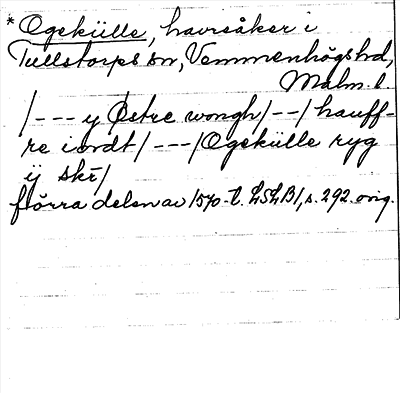 * Ogekülle, havsåker i
Tullstorps sn, Vemmenhögs hd,
Malm. l.
/--- y Østre wongh/--/hauff-
re iordt/---/Ogekülle ryg
ij skr/
förra delen av 1570-t. LSLB1, s. 292. orig.